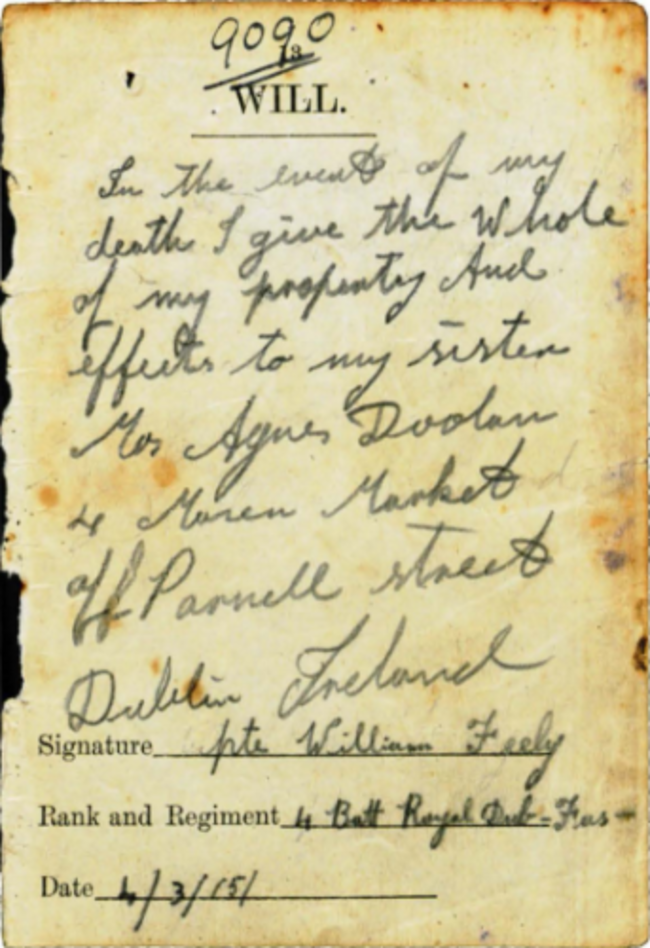 9090
13
WILL.
In the event of my
death I give the Whole
of my property And
effects to my sister
Mrs Agnes Doolan
4 Market
off Parnell street
Dublin Ireland
Signature pte William Feely
Rank and Regiment 4 Batt Royal Dub-Fus-
Date 4/3/15/